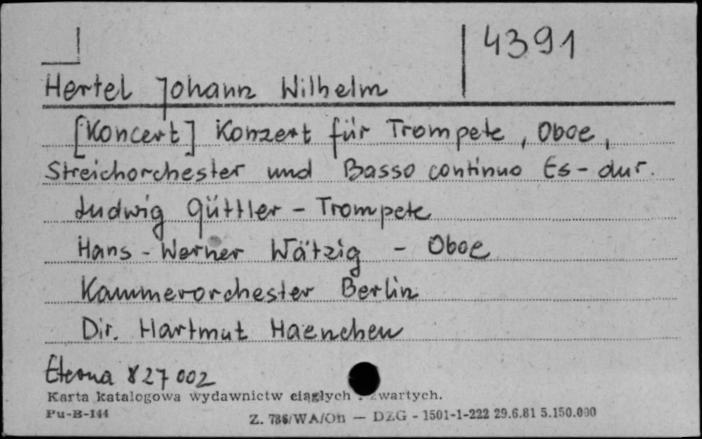 4391
Hertel Johann Wilhelm
[Koncert] Konzert für Trompete, Oboe,
Streichorchester und Basso continuo Es-dur.
Ludwig Güttler - Trompete
Hans-Werner Wätzig - Oboe
Kammerorchester Berlin
Dir. Hartmut Haenchen
Eterna 827002
Karta katalogowa wydawnictw ciągłych zwartych.
Pu-B-144
Z. 786/WA/Oh — DZG - 1501-1-222 29.6.81 5.150.000